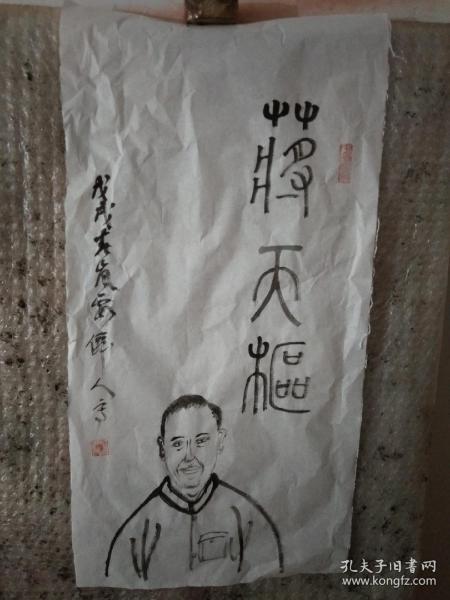 蔣天樞
戊戌春月雲僊人寫
孔夫子旧书网
www.kongfz.com